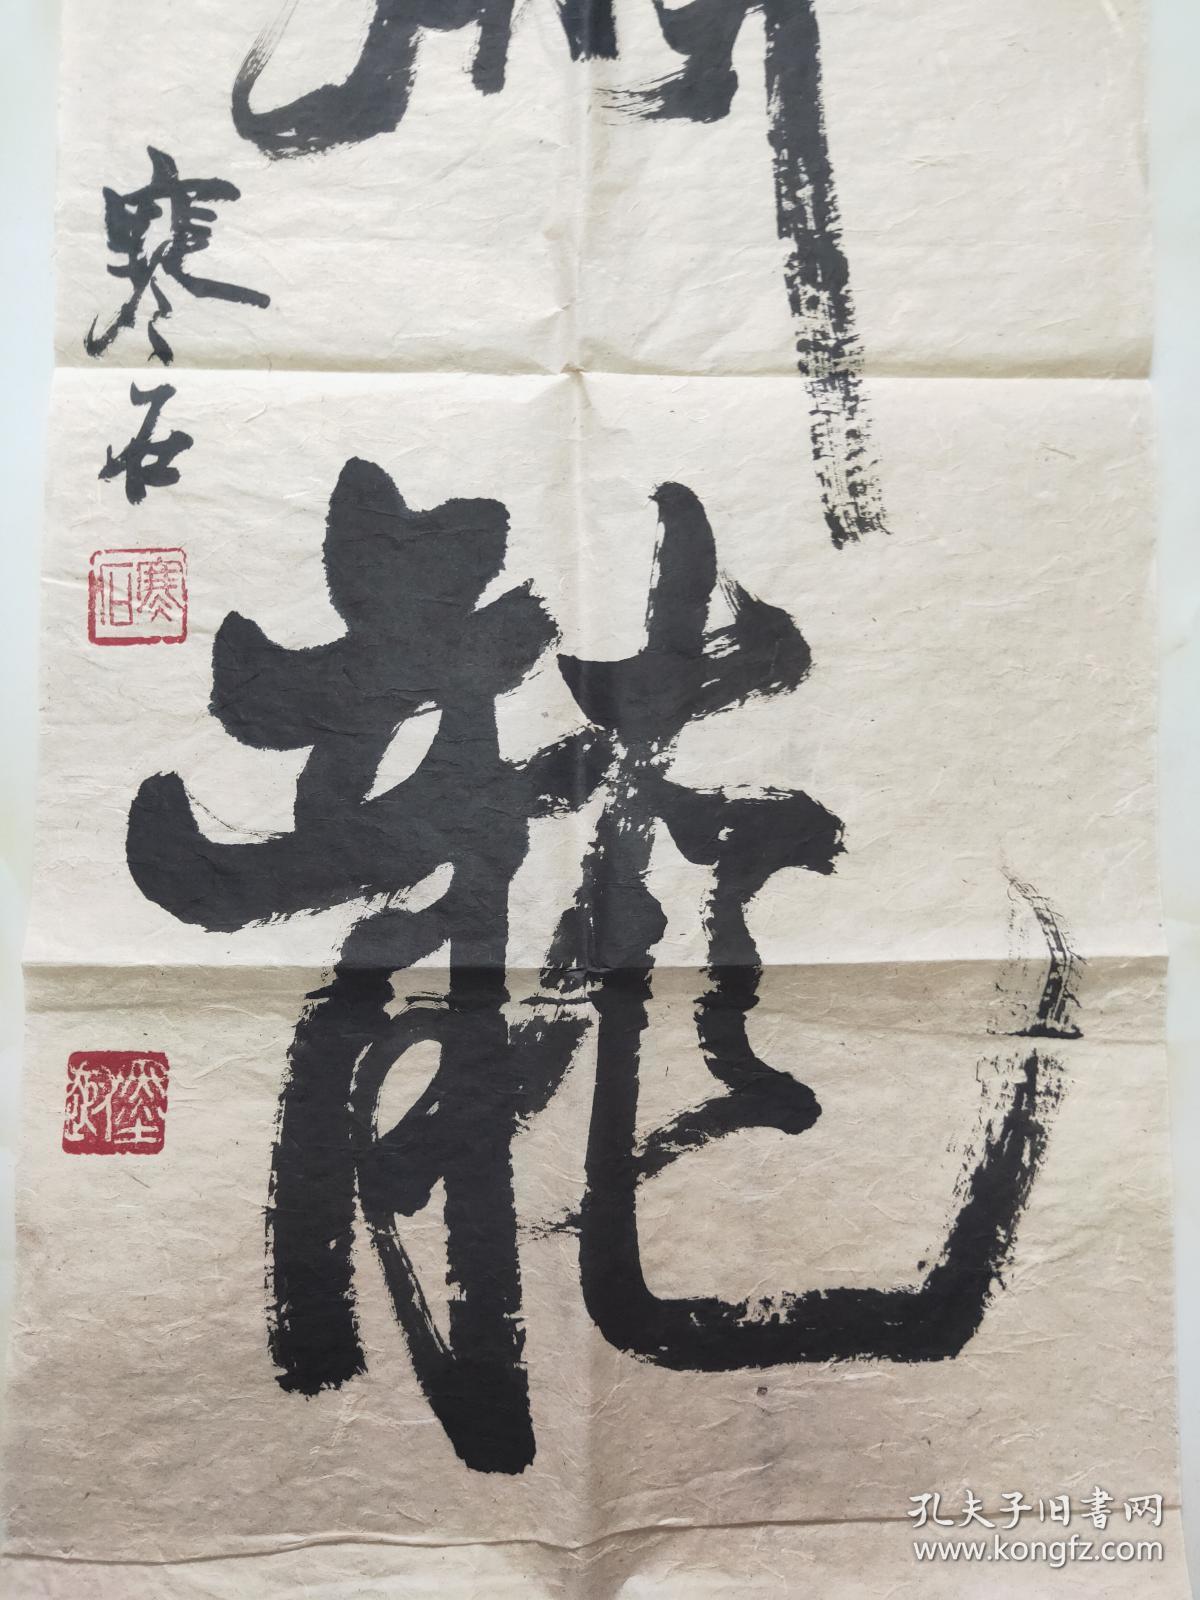 龍
寒石
寒石
孔夫子旧书网
www.kongfz.com